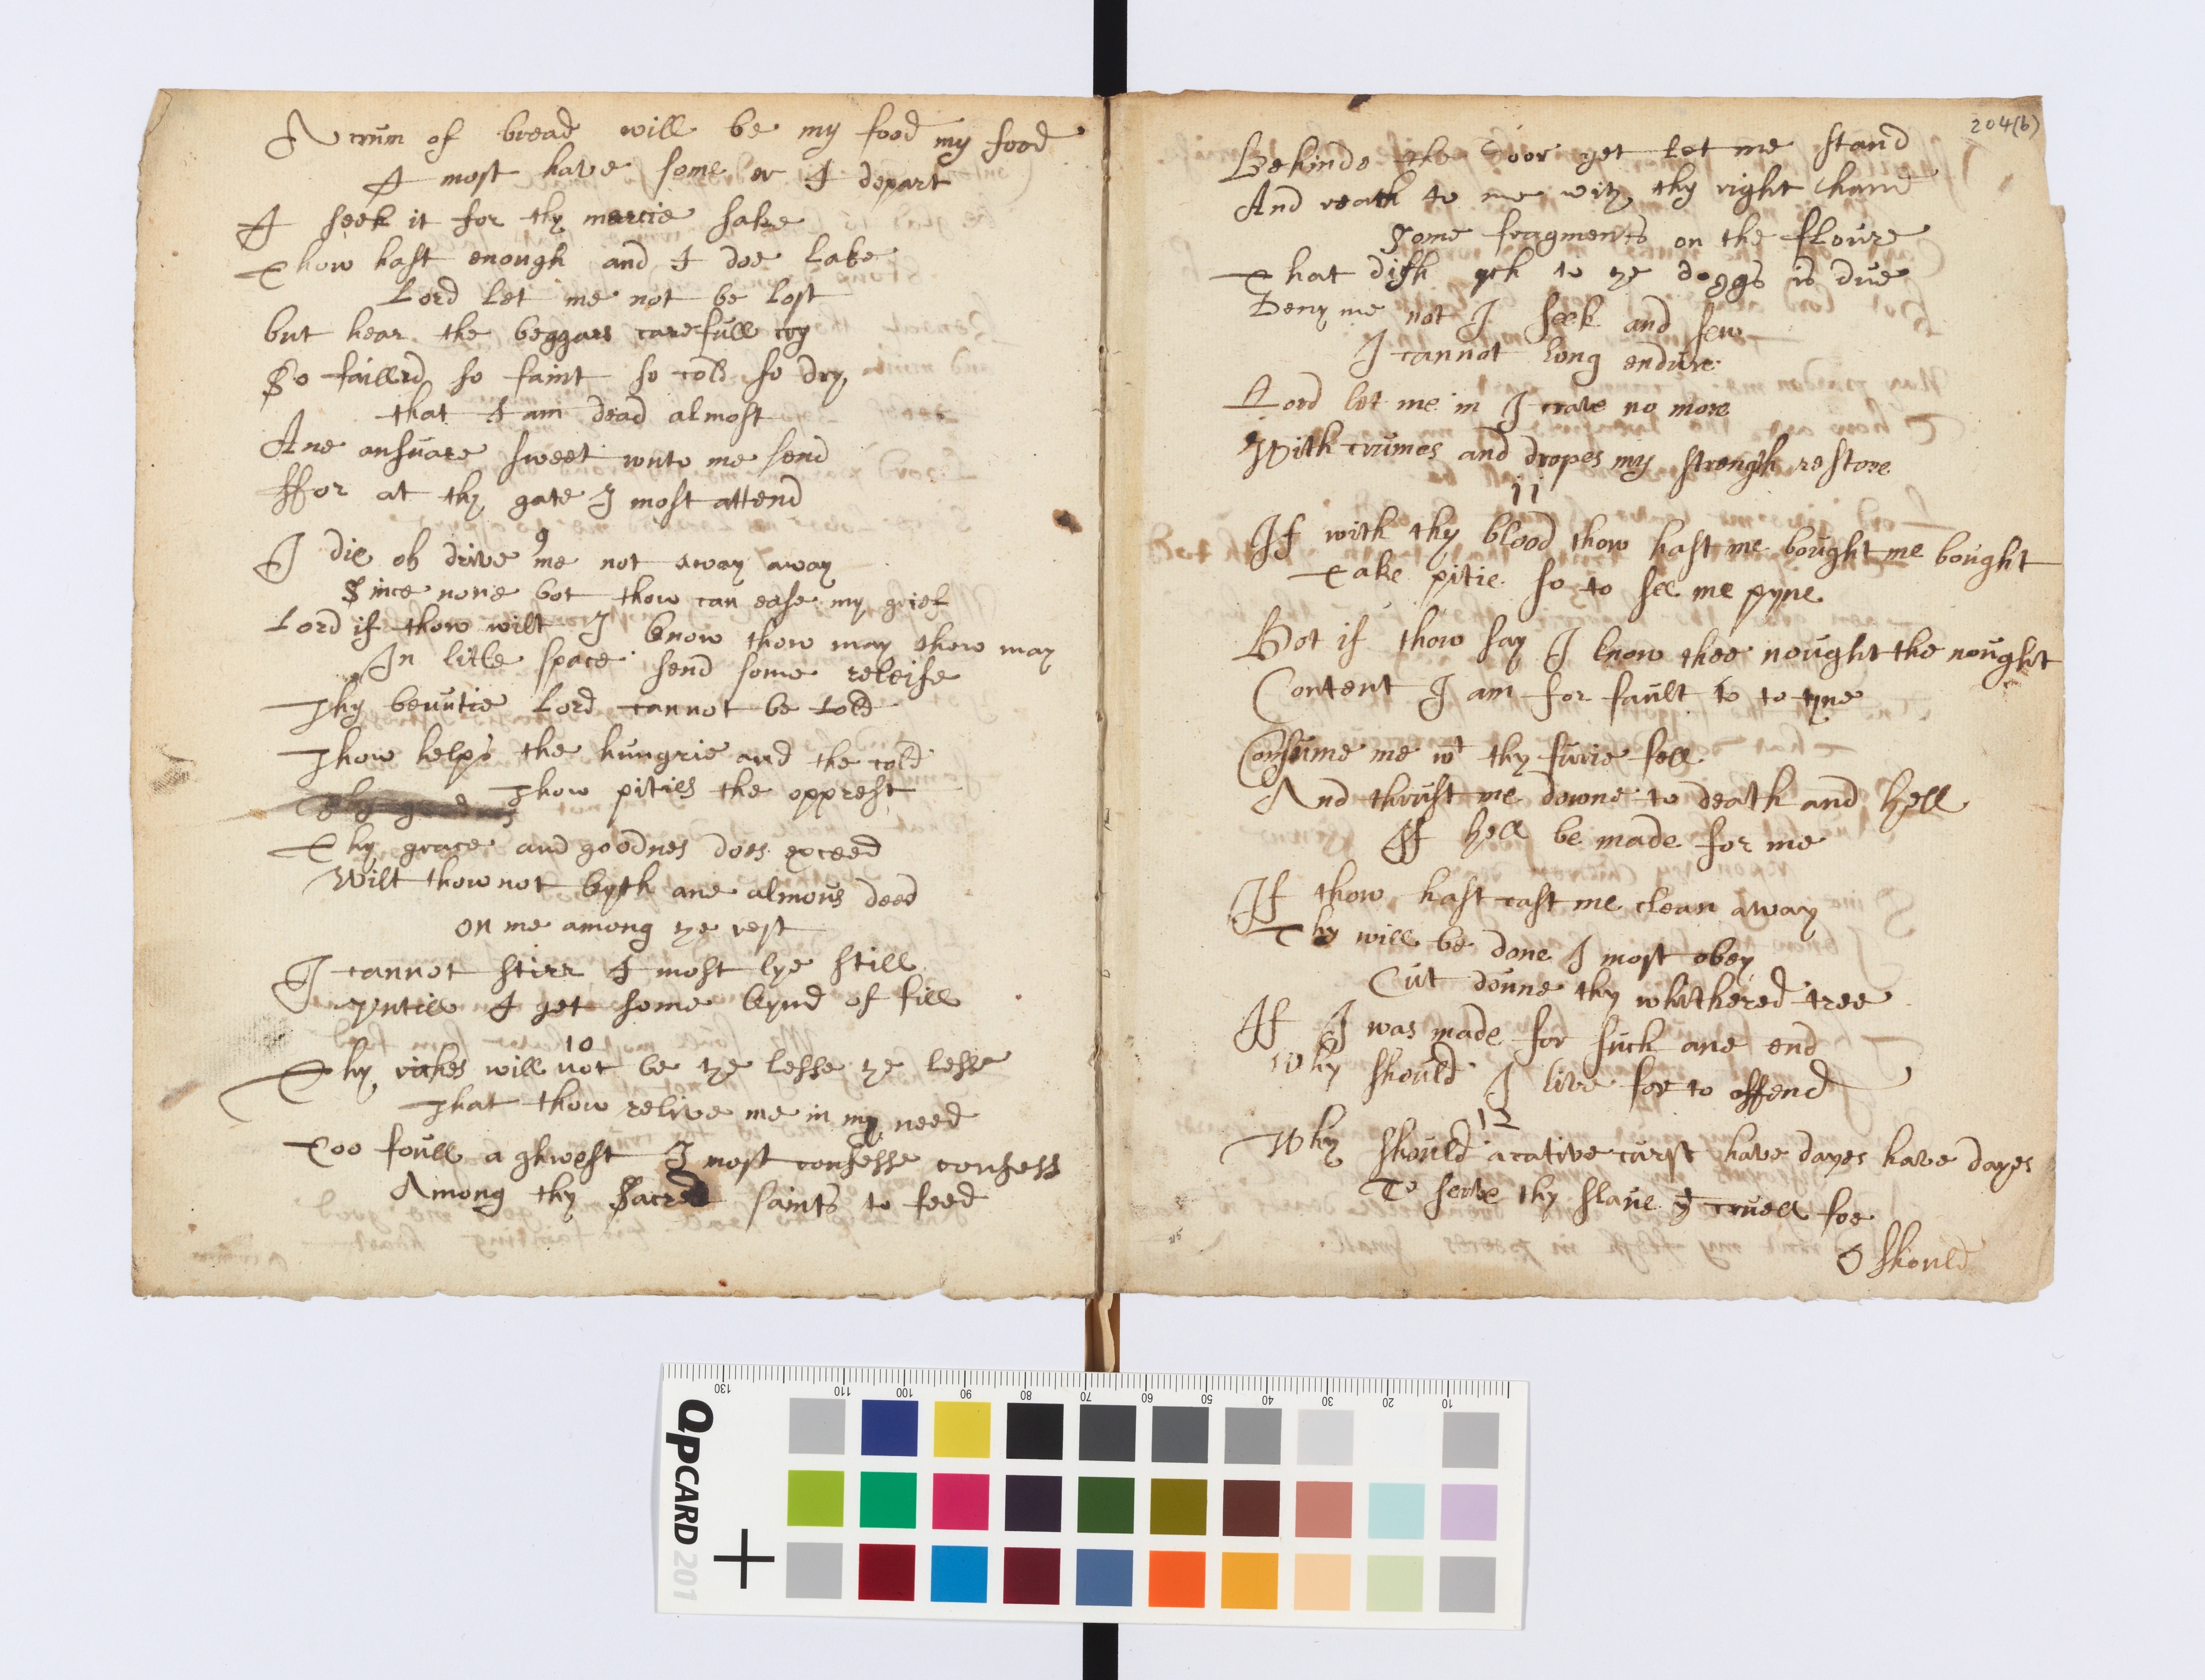 A crum of bread will be my food my food
I most have some or I depart
I seek it for thy mercie sake
Thow hast enough and I doe lake
Lord let me not be lost
but hear the beggars carefull cry
So faillid so faint so cold so dry
that I am dead almost
Ane ansuare sweet unto me send
ffor at thy gate I most attend
9
I die oh drive me not away away
Since none bot thow can ease my grief
Lord if thow wilt I know thow may thow may
In litle space send some releife
Thy beuutie Lord cannot be told
Thow helps the hungrie and the cold
Thow pities the opprest
Thy grace and goodnes does exceed
Wilt thow not kyth ane almous deed
on me among ye rest
I cannot stirr I most lye still
Vntill I get some kynd of fill
10
Thy riches will not be ye lesse ye lesse
That thow relive me in my need
Too foull a ghwest I most confesse confess
Among thy Sacred saints to feed
204(b)
Behinde the door yet let me stand
And reath to me with thy right hand
Some fragments on the floure
That dish qch to ye doggs is due
Deny me not I seek and sew
I cannot long endure
Lord let me in I crave no more
With crumes and dropes my strength restore
11
If with thy blood thow hast me bought me bought
Take pitie so to see me pyne
Bot if thow say I know thee nought the nought
Content I am for fault to to tyne
Consume me wt thy furie fell
And thrust me downe to death and hell
If hell be made for me
If thow hast cast me clean away
Thy will be done I most obey
Cut doune thy whithered tree
If I was made for such ane end
Why should I live for to offend
12
Why should a cative curst have dayes have dayes
To serve thy slaue & cruell foe
O should
QPCARD 201
130 110 100 90 80 70 60 50 40 30 20 10